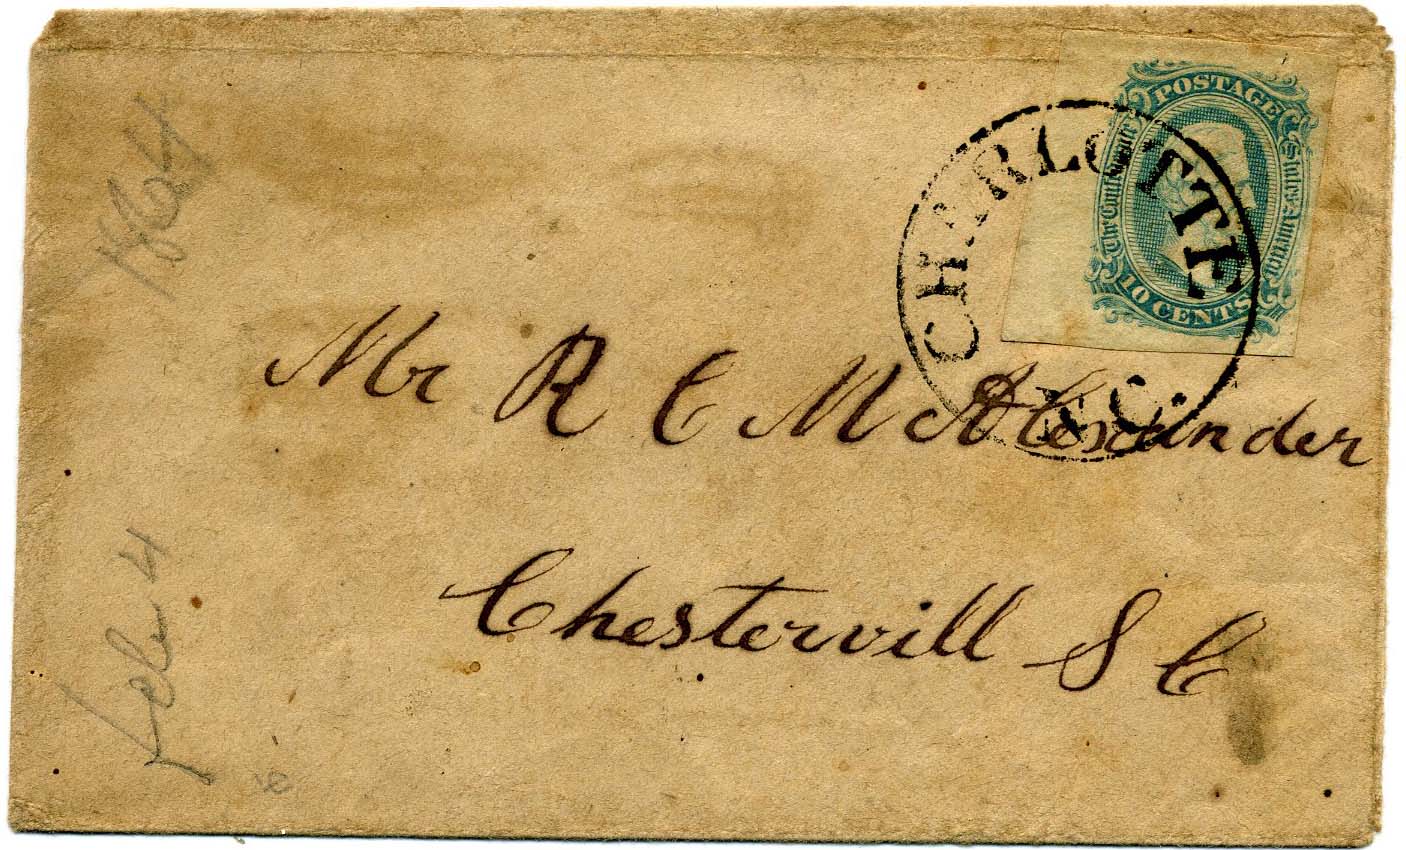 POSTAGE
The Confederate States of America
10 CENTS
CHARLOTTE
N.C.
Mr R C McAlexander
Chestervill S C
1864
Feb 4